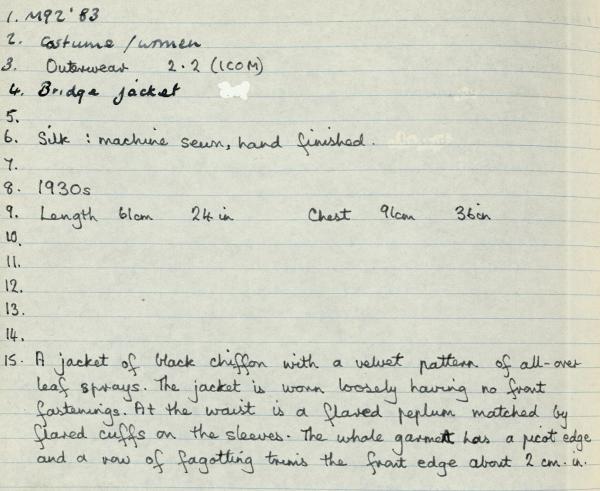 1. M92'83
2. Costume/women
3. Outerwear 2.2 (ICOM)
4. Bridge jacket
5.
6. Silk : machine sewn, hand finished.
7.
8. 1930s
9. Length 61cm 24in Chest 91cm 36in
10.
11.
12.
13.
14.
15. A jacket of black chiffon with a velvet pattern of all-over
leaf sprays. The jacket is worn loosely having no front
fastenings. At the waist is a flared peplum matched by
flared cuffs on the sleeves. The whole garment has a picot edge
and a row of fagotting trims the front edge about 2 cm. in.